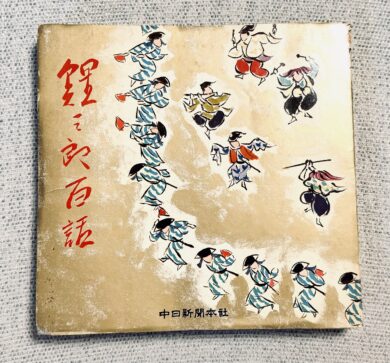 鯉三郎百話
中日新聞本社